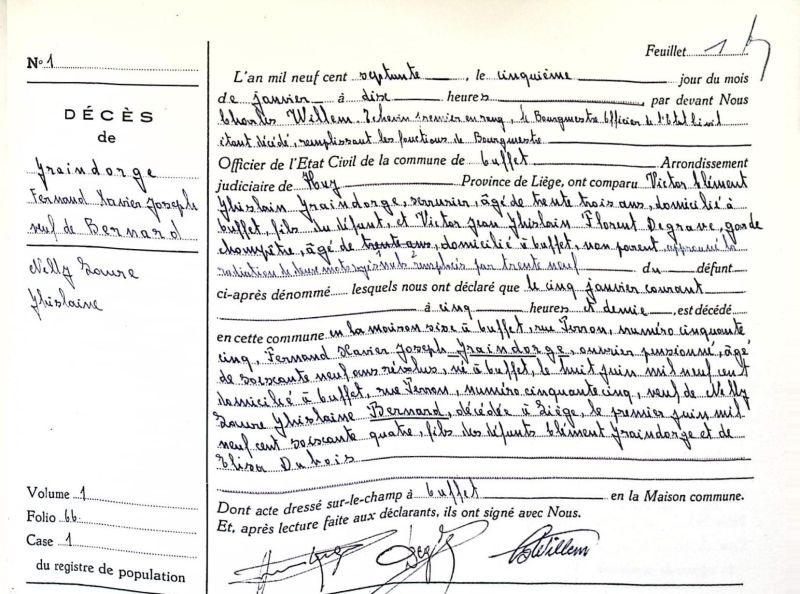 Feuillet 1
N° 1
DÉCÈS
de
Fraindorge
Fernand Xavier Joseph
veuf de Bernard
Nelly Laure
Ghislaine
Volume 1
Folio 66
Case 1
du registre de population
L'an mil neuf cent septante, le cinquième jour du mois
de janvier à dix heures, par devant Nous
Charles Willem, Echevin premier en rang, le Bourgmestre Officier de l'Etat Civil
étant décédé, remplissant les fonctions de Bourgmestre
Officier de l'Etat Civil de la commune de Cuffet Arrondissement
judiciaire de Huy Province de Liège, ont comparu Victor Clément
Ghislain Fraindorge, serrurier, âgé de trente trois ans, domicilié à
Cuffet, fils du défunt, et Victor Jean Ghislain Florent Degrave, garde
champêtre, âgé de trente ans, domicilié à Cuffet, non parent approuvé la
radiation de deux mots rayés nuls remplacés par trente neuf du défunt
ci-après dénommé lesquels nous ont déclaré que le cinq janvier courant
à cinq heures et demie, est décédé
en cette commune en la maison sise à Cuffet, rue Perron, numéro cinquante
cinq, Fernand Xavier Joseph Fraindorge, ouvrier pensionné, âgé
de soixante neuf ans révolus, né à Cuffet, le huit juin mil neuf cent
domicilié à Cuffet, rue Perron, numéro cinquante cinq, veuf de Nelly
Laure Ghislaine Bernard, décédée à Liège, le premier juin mil
neuf cent soixante quatre, fils des défunts Clément Fraindorge et de
Elisa Dubois
Dont acte dressé sur-le-champ à Cuffet en la Maison commune.
Et, après lecture faite aux déclarants, ils ont signé avec Nous.
Willem